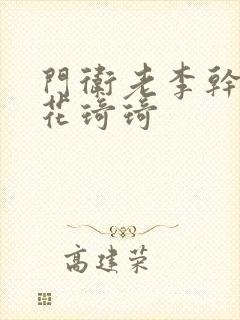 門衛老李幹
花琦琦
高建荣